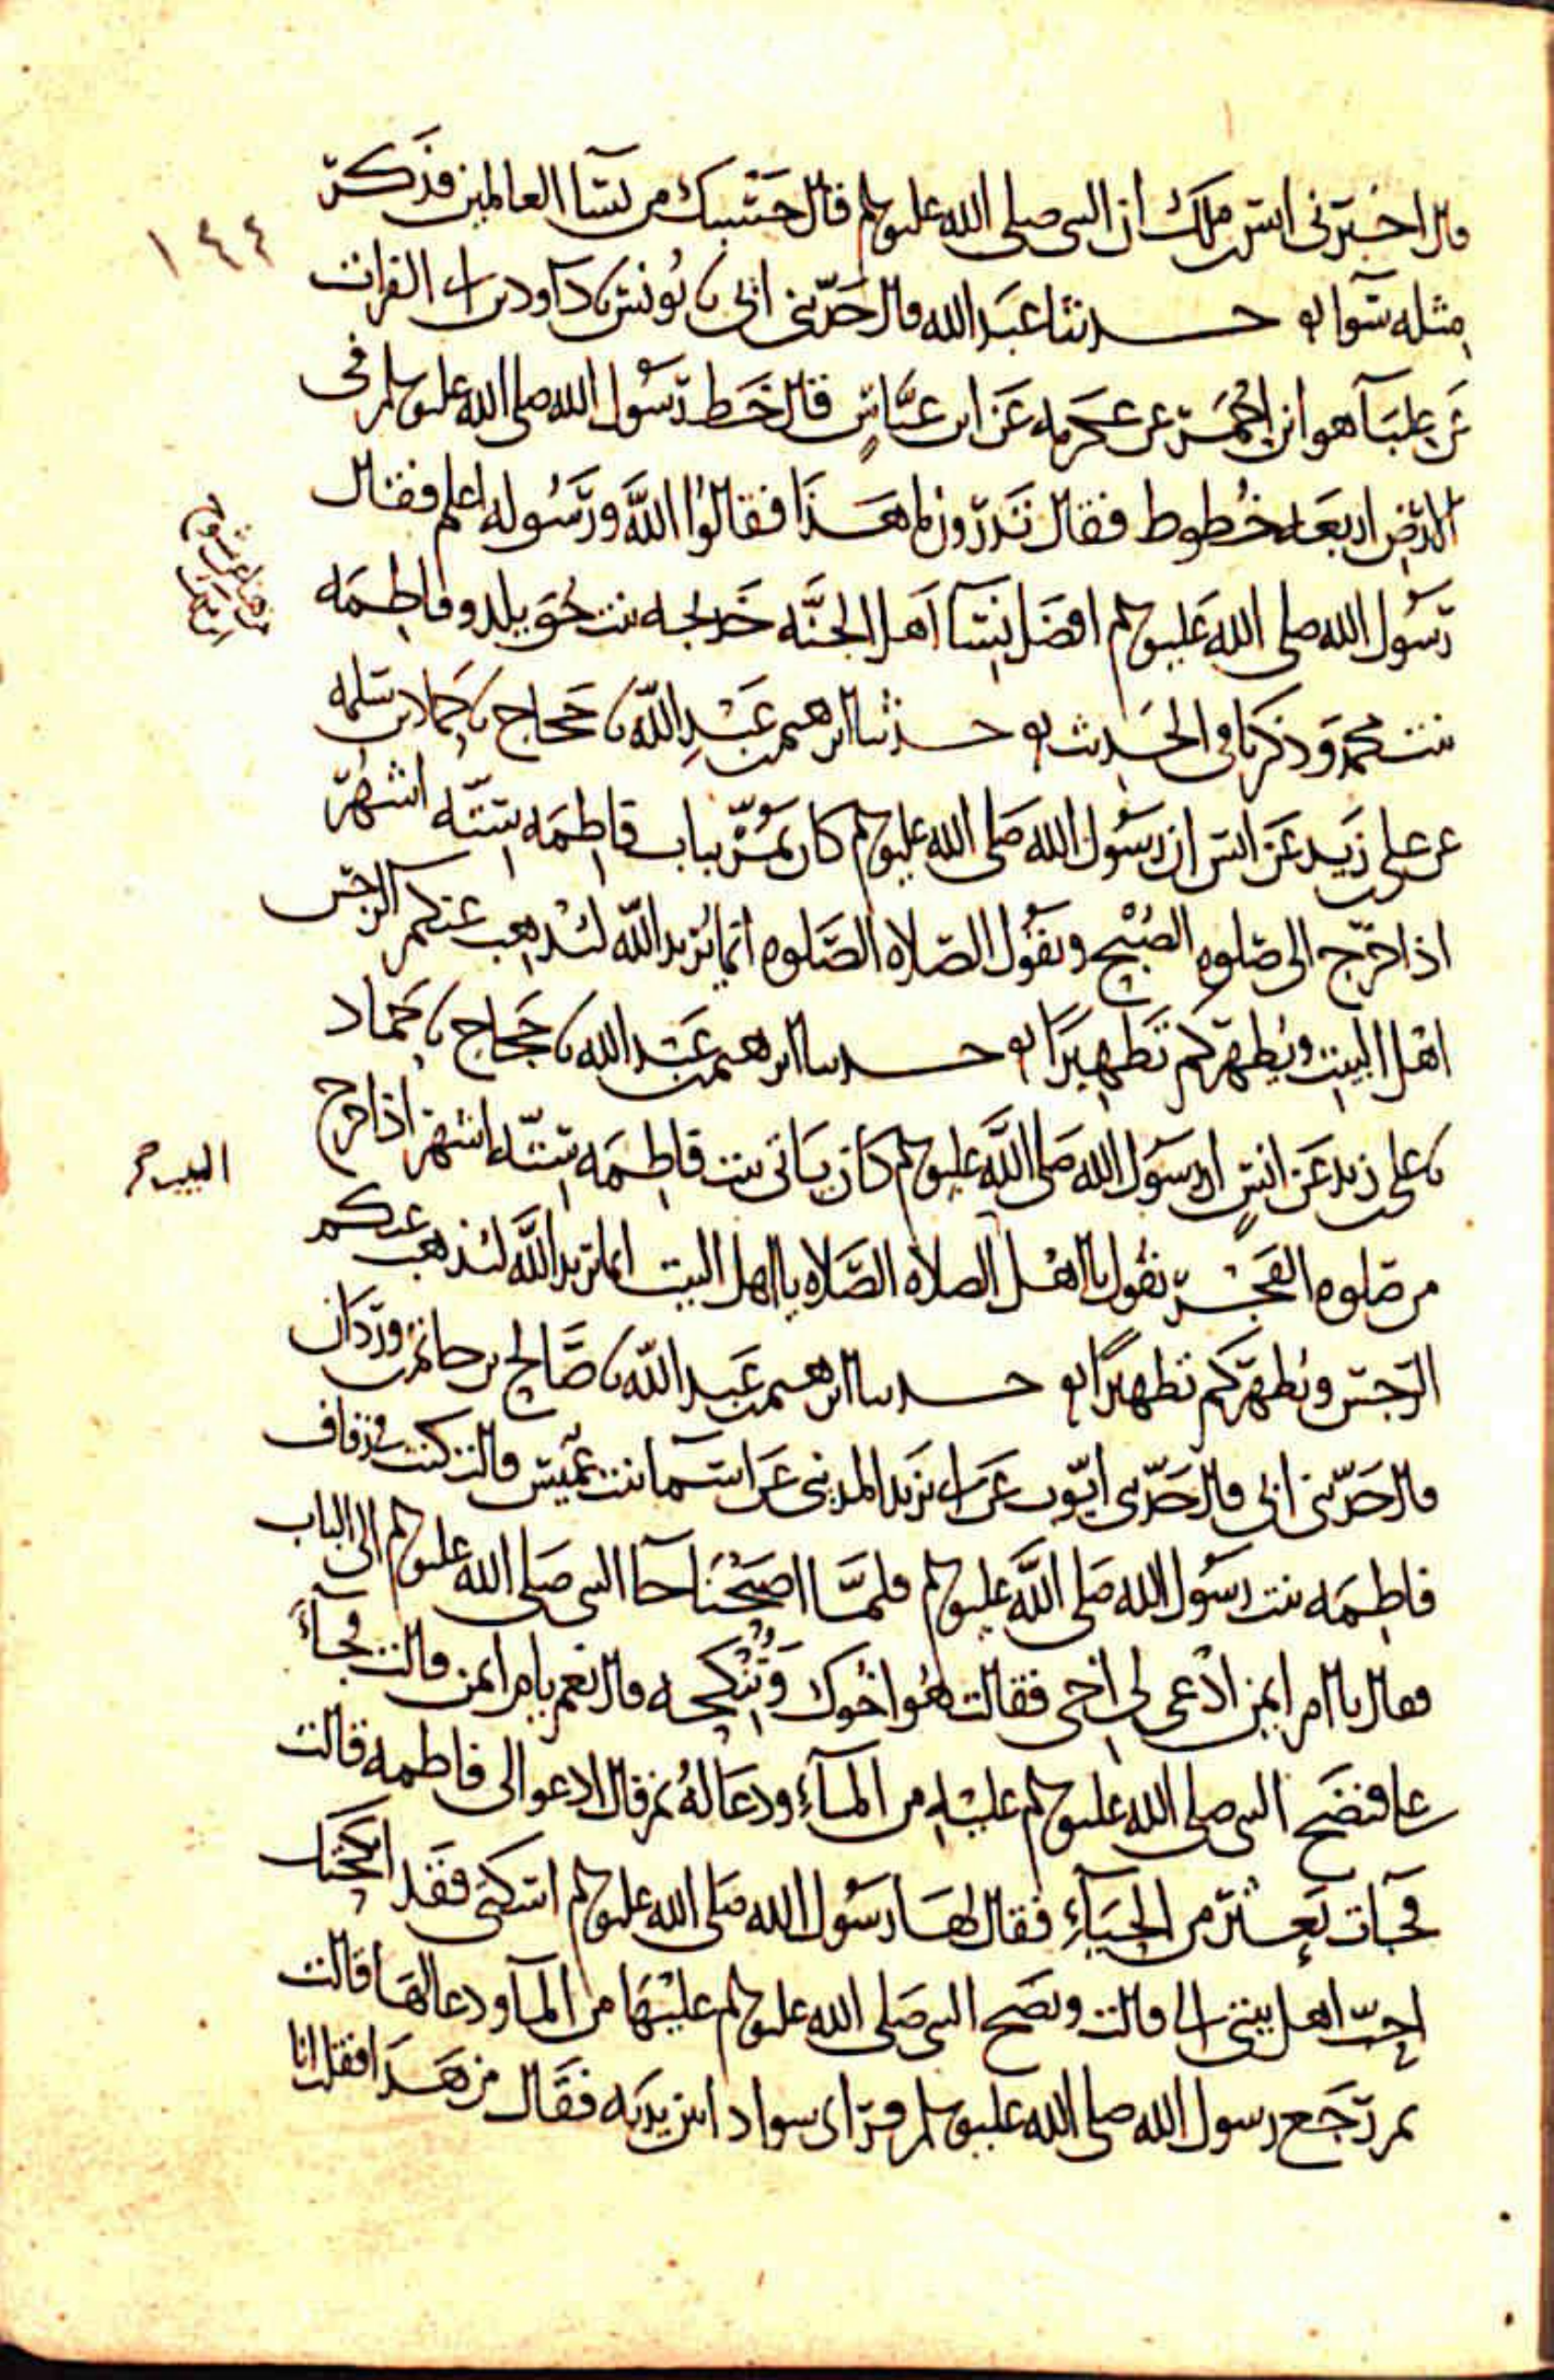 قال اخبرنى انس بن ملك ان النبى صلى الله عليه وسلم قال حسبك من نسا العالمين فذكر
١٤٤
مثله سوا حدثنا عبد الله قال حدثنى ابى نا يونس نا داود بن ابى الفرات
عن علبا هو ابن احمر عن عكرمه عن ابن عباس قال خط رسول الله صلى الله عليه وسلم فى
الارض اربعه خطوط فقال تدرون ما هذا فقالوا الله ورسوله اعلم فقال
رسول الله صلى الله عليه وسلم افضل نسا اهل الجنه خديجه بنت خويلد وفاطمه
بنت محمد وذكر باقى الحديث حدثنا ابرهيم بن عبد الله نا حجاج نا حماد بن سلمه
عن على بن زيد عن انس ان رسول الله صلى الله عليه وسلم كان يمر بباب فاطمه سته اشهر
اذا خرج الى صلوه الصبح ويقول الصلاه الصلوه انما يريد الله ليذهب عنكم الرجس
اهل البيت ويطهركم تطهيرا حدثنا ابرهيم بن عبد الله نا حجاج نا حماد
نا على بن زيد عن انس ان رسول الله صلى الله عليه وسلم كان ياتى بيت فاطمه سته اشهر اذا خرج
البيت
من صلوه الفجر يقول يا اهل الصلاه الصلاه يا اهل البيت انما يريد الله ليذهب عنكم
الرجس ويطهركم تطهيرا حدثنا ابرهيم بن عبد الله نا صالح بن حاتم بن وردان
قال حدثنى ابى قال حدثنى ايوب عن ابى يزيد المدينى عن اسما بنت عميس قالت كنت فى زفاف
فاطمه بنت رسول الله صلى الله عليه وسلم فلما اصبحنا جا النبى صلى الله عليه وسلم الى الباب
فقال يا ام ايمن ادعى لى اخى فقالت هو اخوك وتنكحه قال نعم يا ام ايمن قالت فجاء
على فنضح النبى صلى الله عليه وسلم عليه من الماء ودعا له ثم قال ادعوا لى فاطمه قالت
فجات تعثر من الحياء فقال لها رسول الله صلى الله عليه وسلم اسكنى فقد انكحتك
احب اهل بيتى الى قالت ونضح النبى صلى الله عليه وسلم عليها من الما ودعا لها قالت
ثم رجع رسول الله صلى الله عليه وسلم فراى سوادا بين يديه فقال من هذا فقلت انا